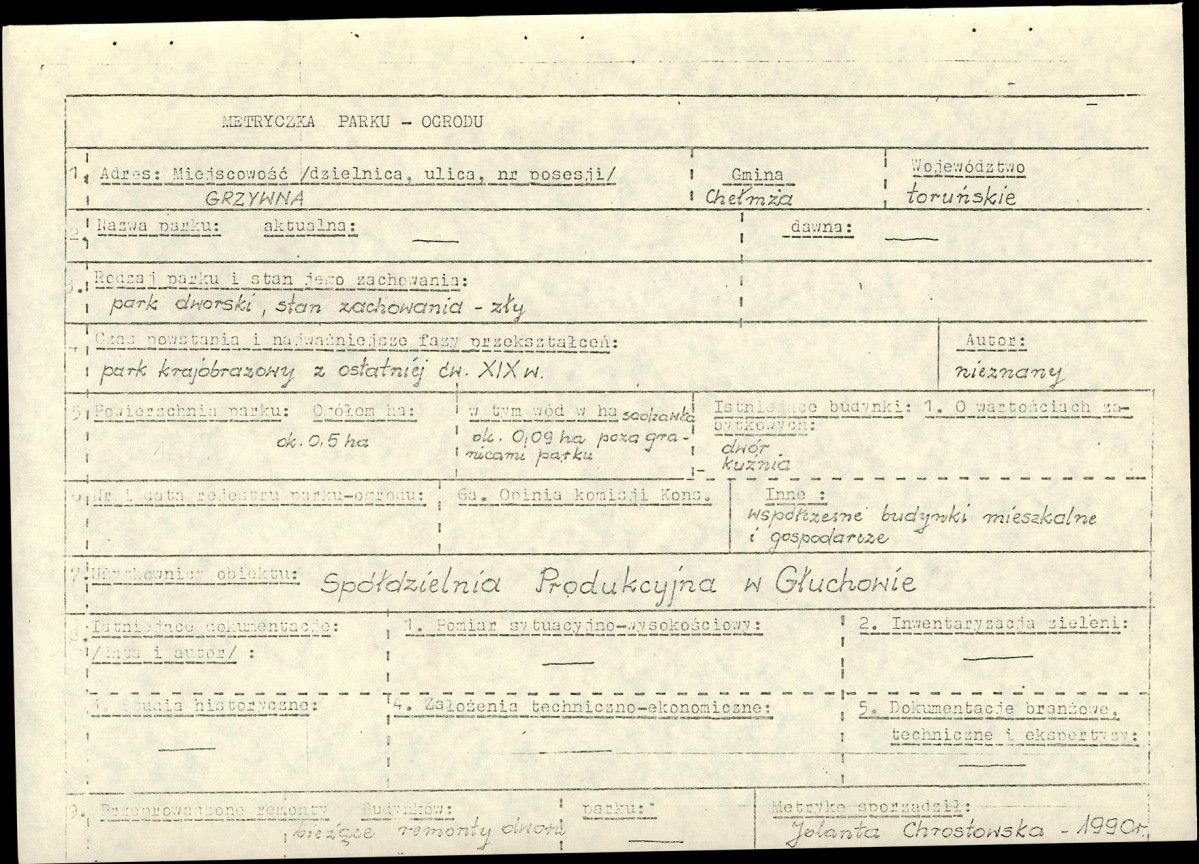 METRYCZKA PARKU - OGRODU
1. Adres: Miejscowość /dzielnica, ulica, nr posesji/
GRZYWNA
Gmina
Chełmża
Województwo
toruńskie
2. Nazwa parku: aktualna: —
dawna: —
3. Rodzaj parku i stan jego zachowania:
park dworski, stan zachowania - zły
4. Czas powstania i najważniejsze fazy przekształceń:
park krajobrazowy z ostatniej ćw. XIX w.
Autor:
nieznany
5. Powierzchnia parku: Ogółem ha:
ok. 0,5 ha
w tym wód w ha sadzawka
ok. 0,09 ha poza gra-
nicami parku
Istniejące budynki: 1. O wartościach za-
bytkowych:
dwór
kuźnia
6. Nr i data rejestru parku-ogrodu:
6a. Opinia komisji Kons.
Inne :
współczesne budynki mieszkalne
i gospodarcze
7. Użytkownicy obiektu: Spółdzielnia Produkcyjna w Głuchowie
8. Istniejące dokumentacje:
/data i autor/ :
1. Pomiar sytuacyjno-wysokościowy:
—
2. Inwentaryzacja zieleni:
—
3. Studia historyczne:
—
4. Założenia techniczno-ekonomiczne:
—
5. Dokumentacje branżowe,
techniczne i ekspertyzy:
—
9. Przeprowadzone remonty Budynków:
bieżące remonty dworu
parku:
—
Metrykę sporządził:
Jolanta Chrostowska - 1990r.